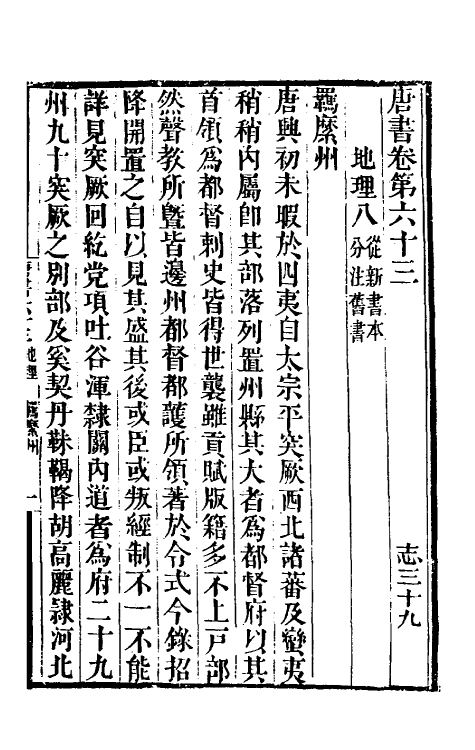 唐書卷第六十三　　志三十九
地理八 從新書本
分注舊書
羈縻州
唐興初未暇於四夷自太宗平突厥西北諸蕃及蠻夷
稍稍內屬即其部落列置州縣其大者為都督府以其
首領為都督刺史皆得世襲雖貢賦版籍多不上戸部
然聲教所暨皆邊州都督都護所領著於令式今錄招
降開置之自以見其盛其後或臣或叛經制不一不能
詳見突厥回紇党項吐谷渾隸關內道者為府二十九
州九十突厥之別部及奚契丹靺鞨降胡高麗隸河北
地理 羈縻州 一